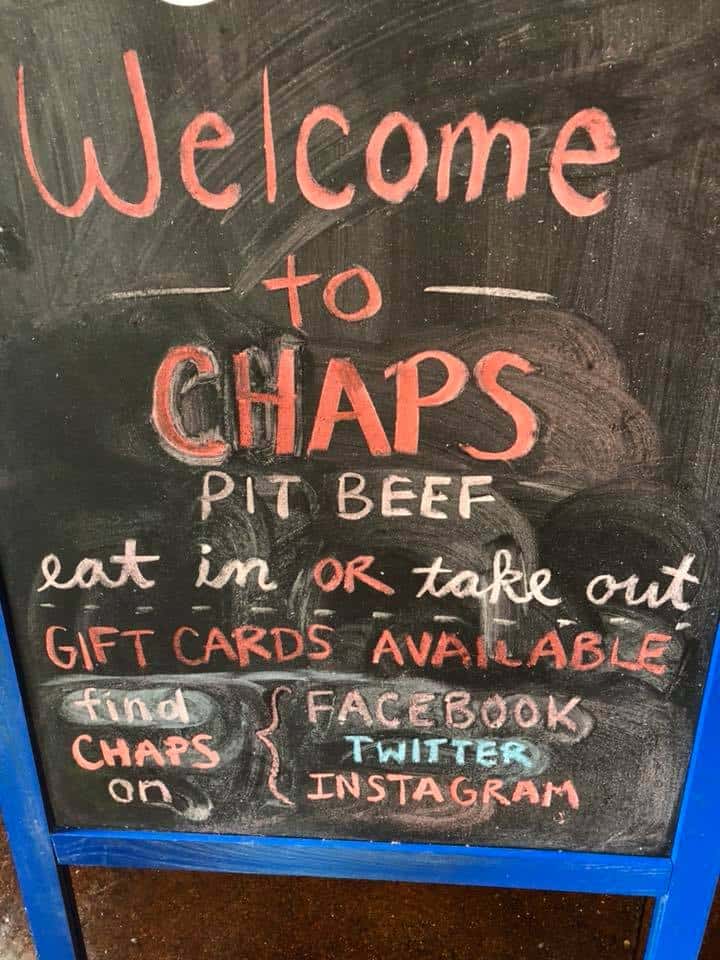 Welcome
to
CHAPS
PIT BEEF
eat in OR take out
GIFT CARDS AVAILABLE
find CHAPS on { FACEBOOK
TWITTER
INSTAGRAM